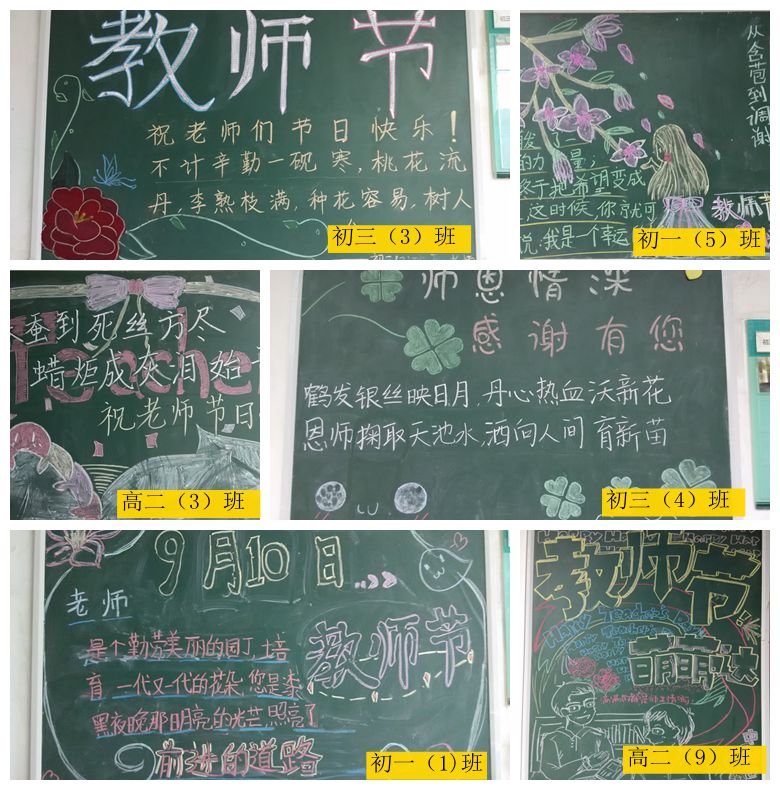 教师节
祝老师们节日快乐！
不计辛勤一砚寒，桃花流
丹，李熟枝满，种花容易，树人
初三（3）班
从含苞到调谢
的力量；
终于把希望变成
这时候，你就可
说：我是一个幸运
教师节
初一（5）班
Teache
蚕到死丝方尽
蜡炬成灰泪始干
祝老师节日
高二（3）班
师恩情深
感谢有您
鹤发银丝映日月，丹心热血沃新花
恩师掬取天池水，洒向人间育新苗
初三（4）班
9月10日
老师
教师节
是个勤劳美丽的园丁，培
育一代又一代的花朵，您是漆
黑夜晚那明亮的光芒，照亮了
前进的道路
初一（1)班
Happy
教师节
Happy Teacher's Day
萌萌哒
高二（9）班